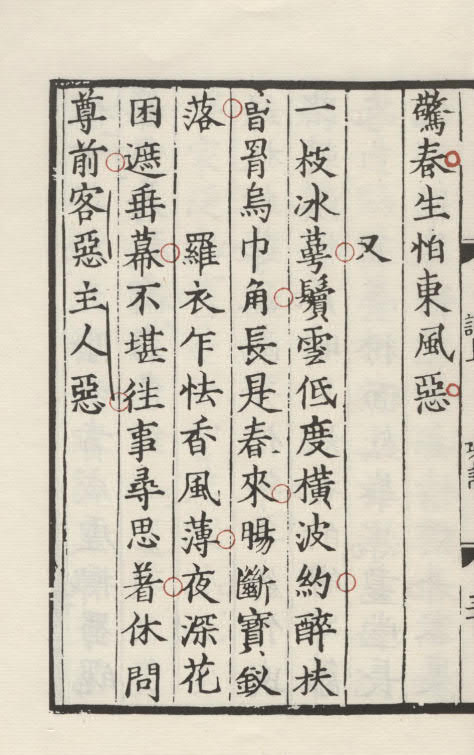 驚春生怕東風惡
又
一枝冰萼鬢雲低度橫波約醉扶
曾罥烏巾角長是春來腸斷寶釵
落　羅衣乍怯香風薄夜深花
困遮垂幕不堪往事尋思著休問
尊前客惡主人惡